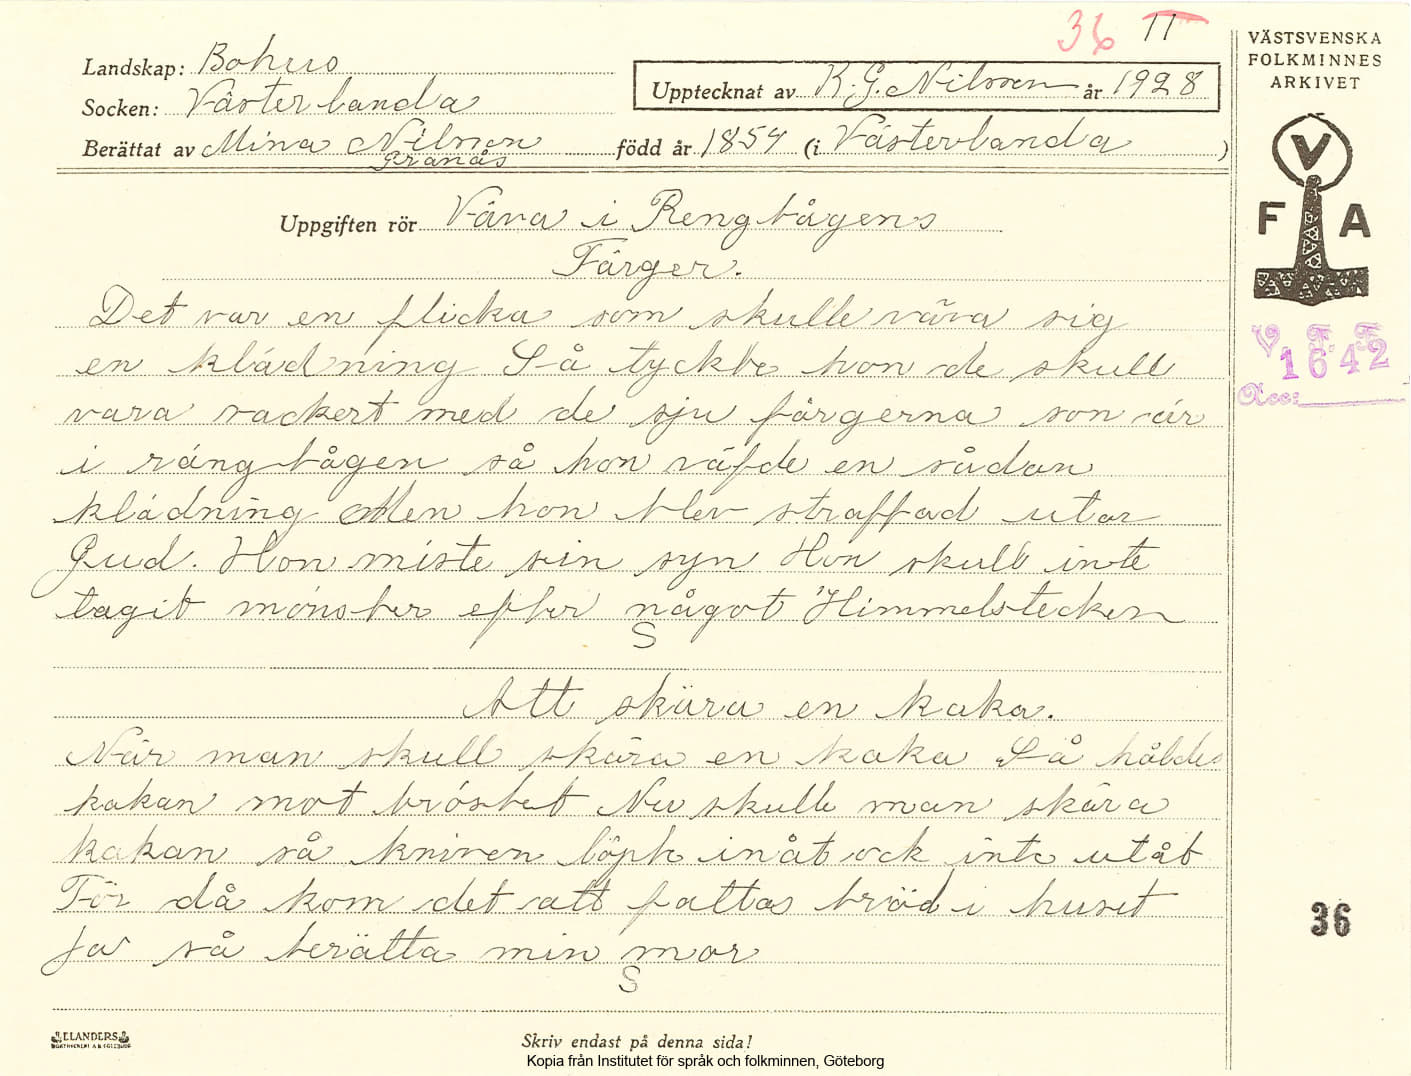 36 11
VÄSTSVENSKA
FOLKMINNES
ARKIVET
Landskap: Bohus
Upptecknat av K. G. Nilsson år 1928
Socken: Västerlanda
Berättat av Mina Nilsson född år 1854 (i Västerlanda )
Granås
V
F A
Uppgiften rör Väva i Rengbågens
Färger.
Det var en flicka som skulle väva sig
en klädning Så tyckte hon de skull
vara vackert med de sju färgerna son är
i rängbågen så hon väfde en sådan
klädning Men hon blev straffad utav
Gud. Hon miste sin syn Hon skulle inte
tagit mönster efter något Himmelstecken
S
V. F. F.
1642
Acc:
Att skära en kaka.
När man skull skära en kaka Så håldes
kakan mot bröstet Nu skulle man skära
kakan så kniven löpte inåt ock inte utåt
För då kom det att fattas bröd i huset
Ja så berätta min mor
S
36
ELANDERS
BOKTRYCKERI A.B. GÖTEBORG
Skriv endast på denna sida!
Kopia från Institutet för språk och folkminnen, Göteborg